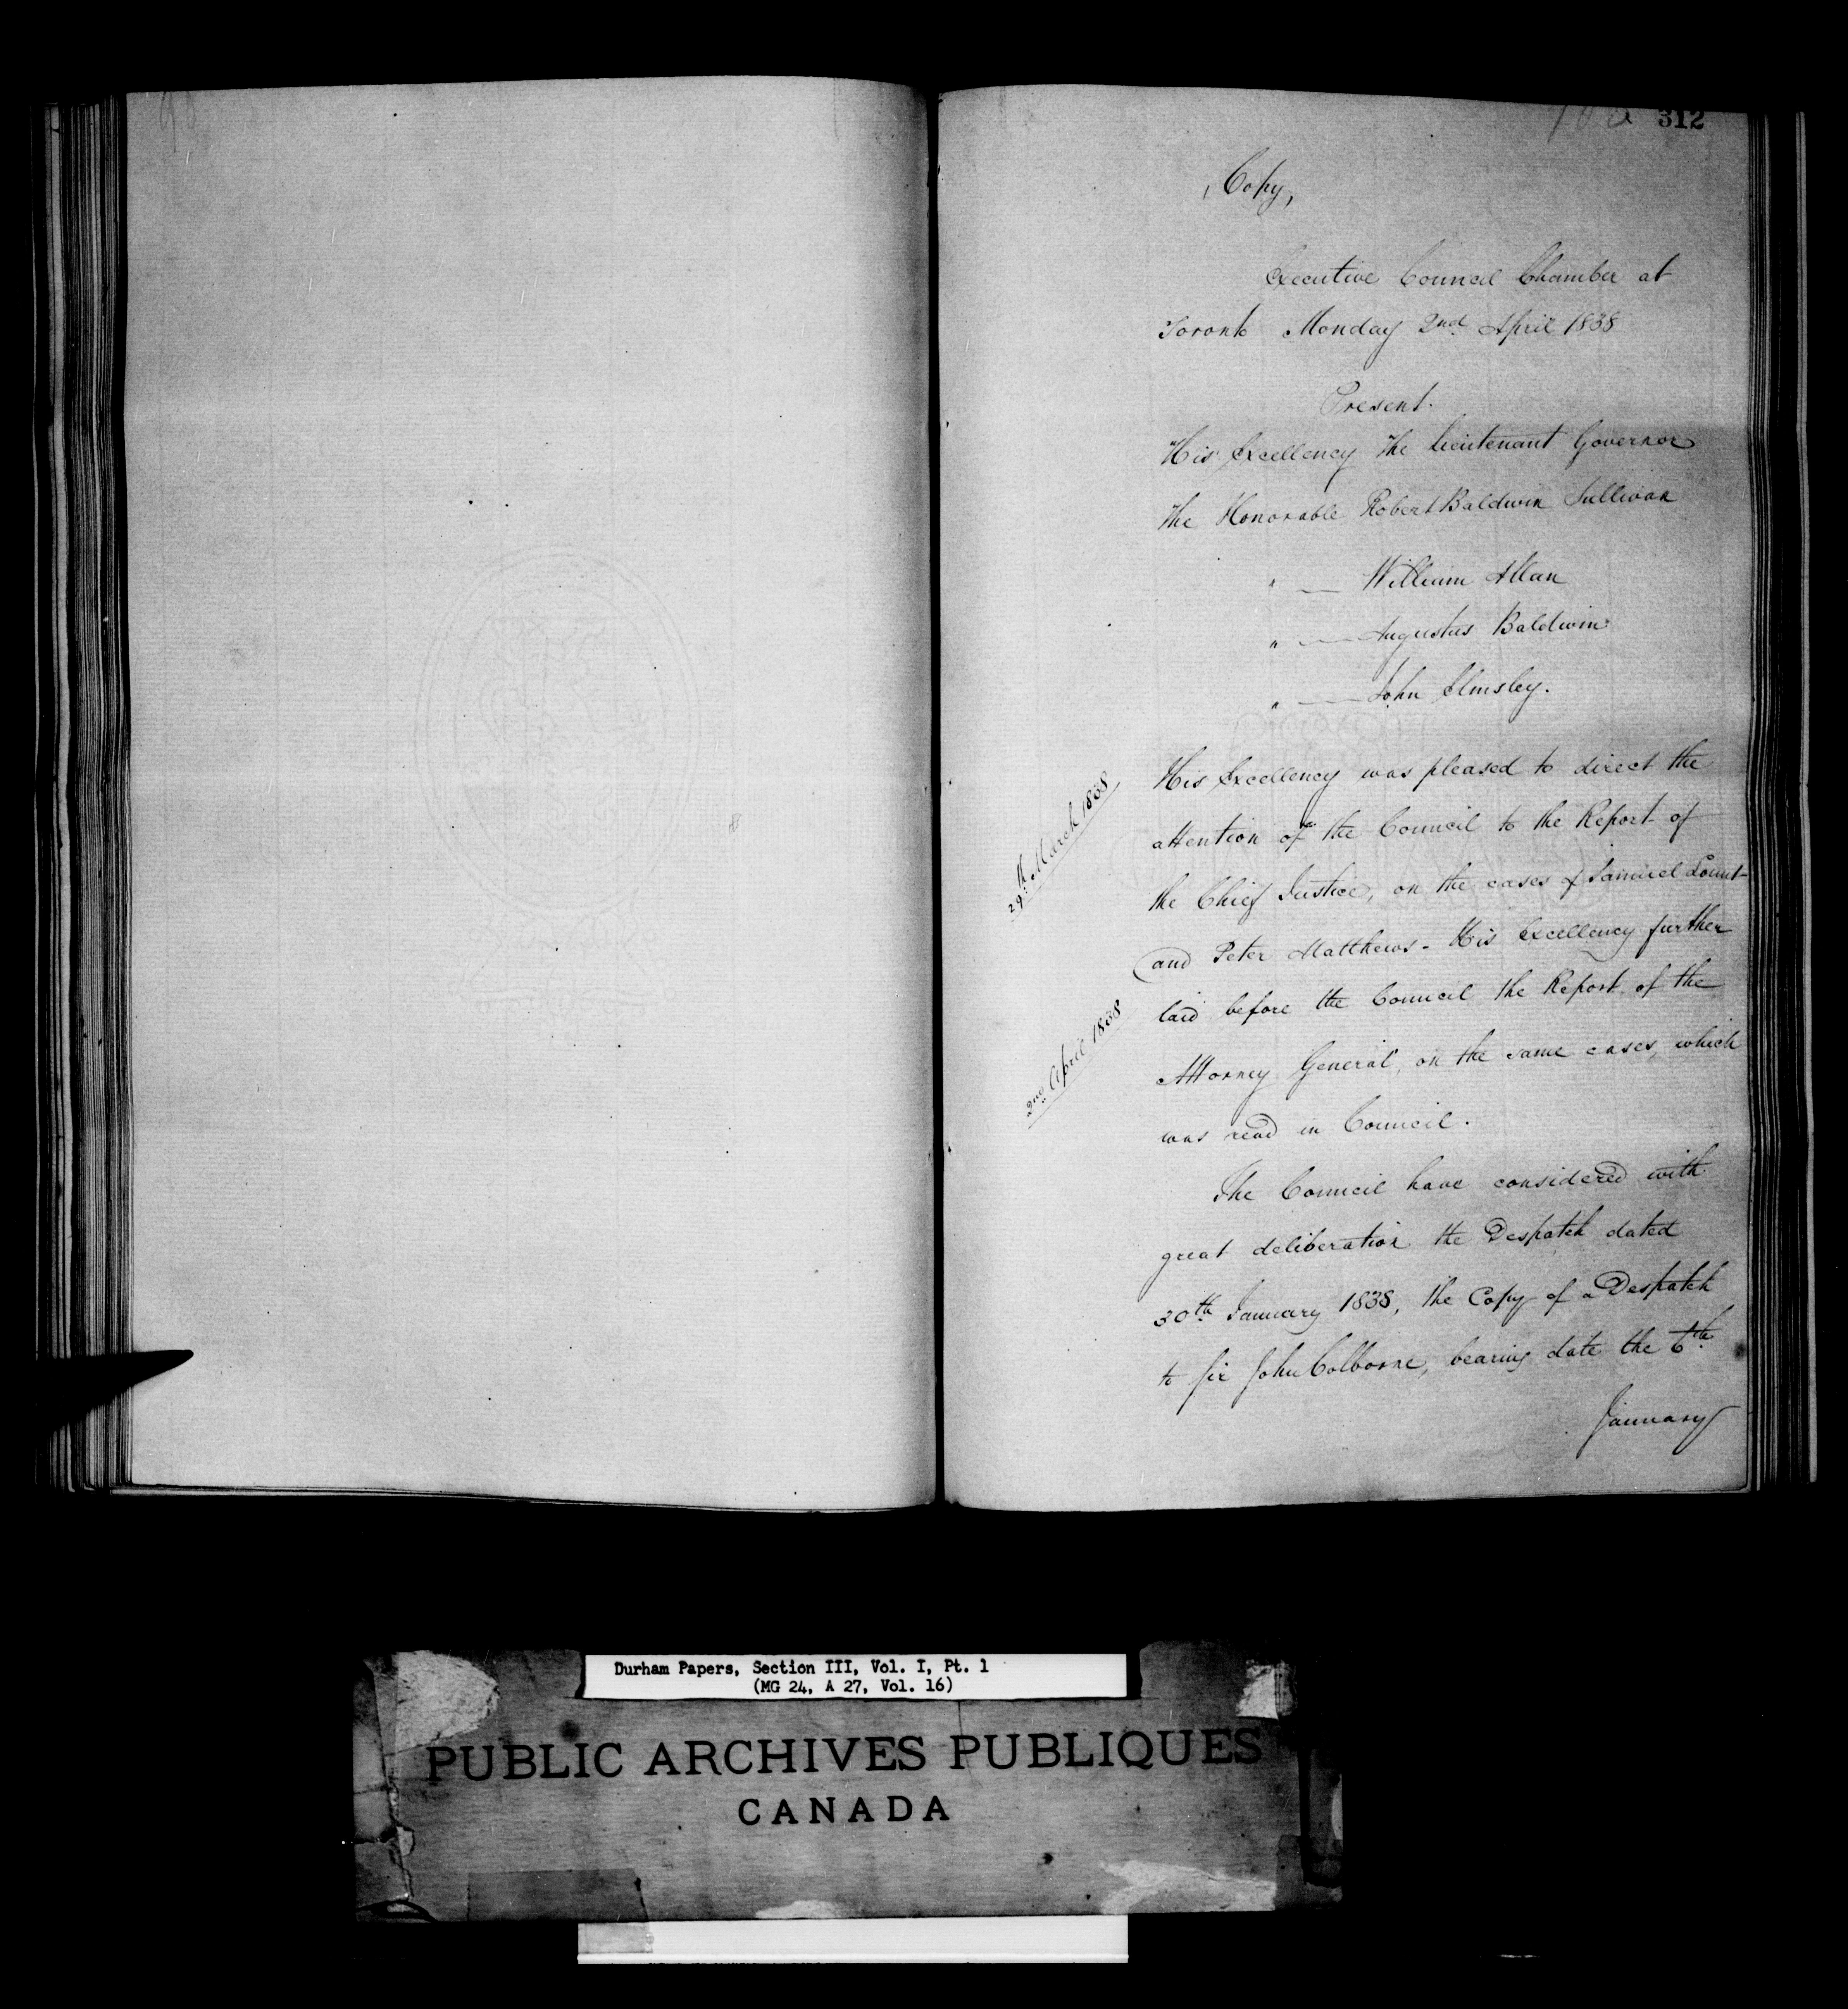 312
Copy,
Executive Council Chamber at
Toronto Monday 2nd April 1838
Present.
His Excellency The Lieutenant Governor
The Honorable Robert Baldwin Sullivan
" — William Allan
" — Augustus Baldwin
" — John Elmsley.
29th March 1838
His Excellency was pleased to direct the
attention of the Council to the Report of
the Chief Justice, on the cases of Samuel Lount
and Peter Matthews - His Excellency further
2nd April 1838
laid before the Council the Report of the
Attorney General, on the same cases, which
was read in Council.
The Council have considered with
great deliberation the Despatch dated
30th January 1838, the Copy of a Despatch
to Sir John Colborne, bearing date the 6th
January
Durham Papers, Section III, Vol. I, Pt. 1
(MG 24, A 27, Vol. 16)
PUBLIC ARCHIVES PUBLIQUES
CANADA